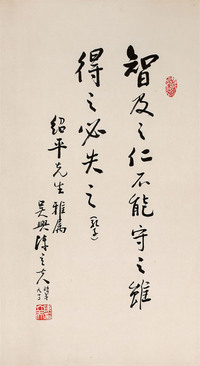 智及之仁不能守之雖
得之必失之（孔子）
紹平先生雅屬
吳興陳立夫時年九十